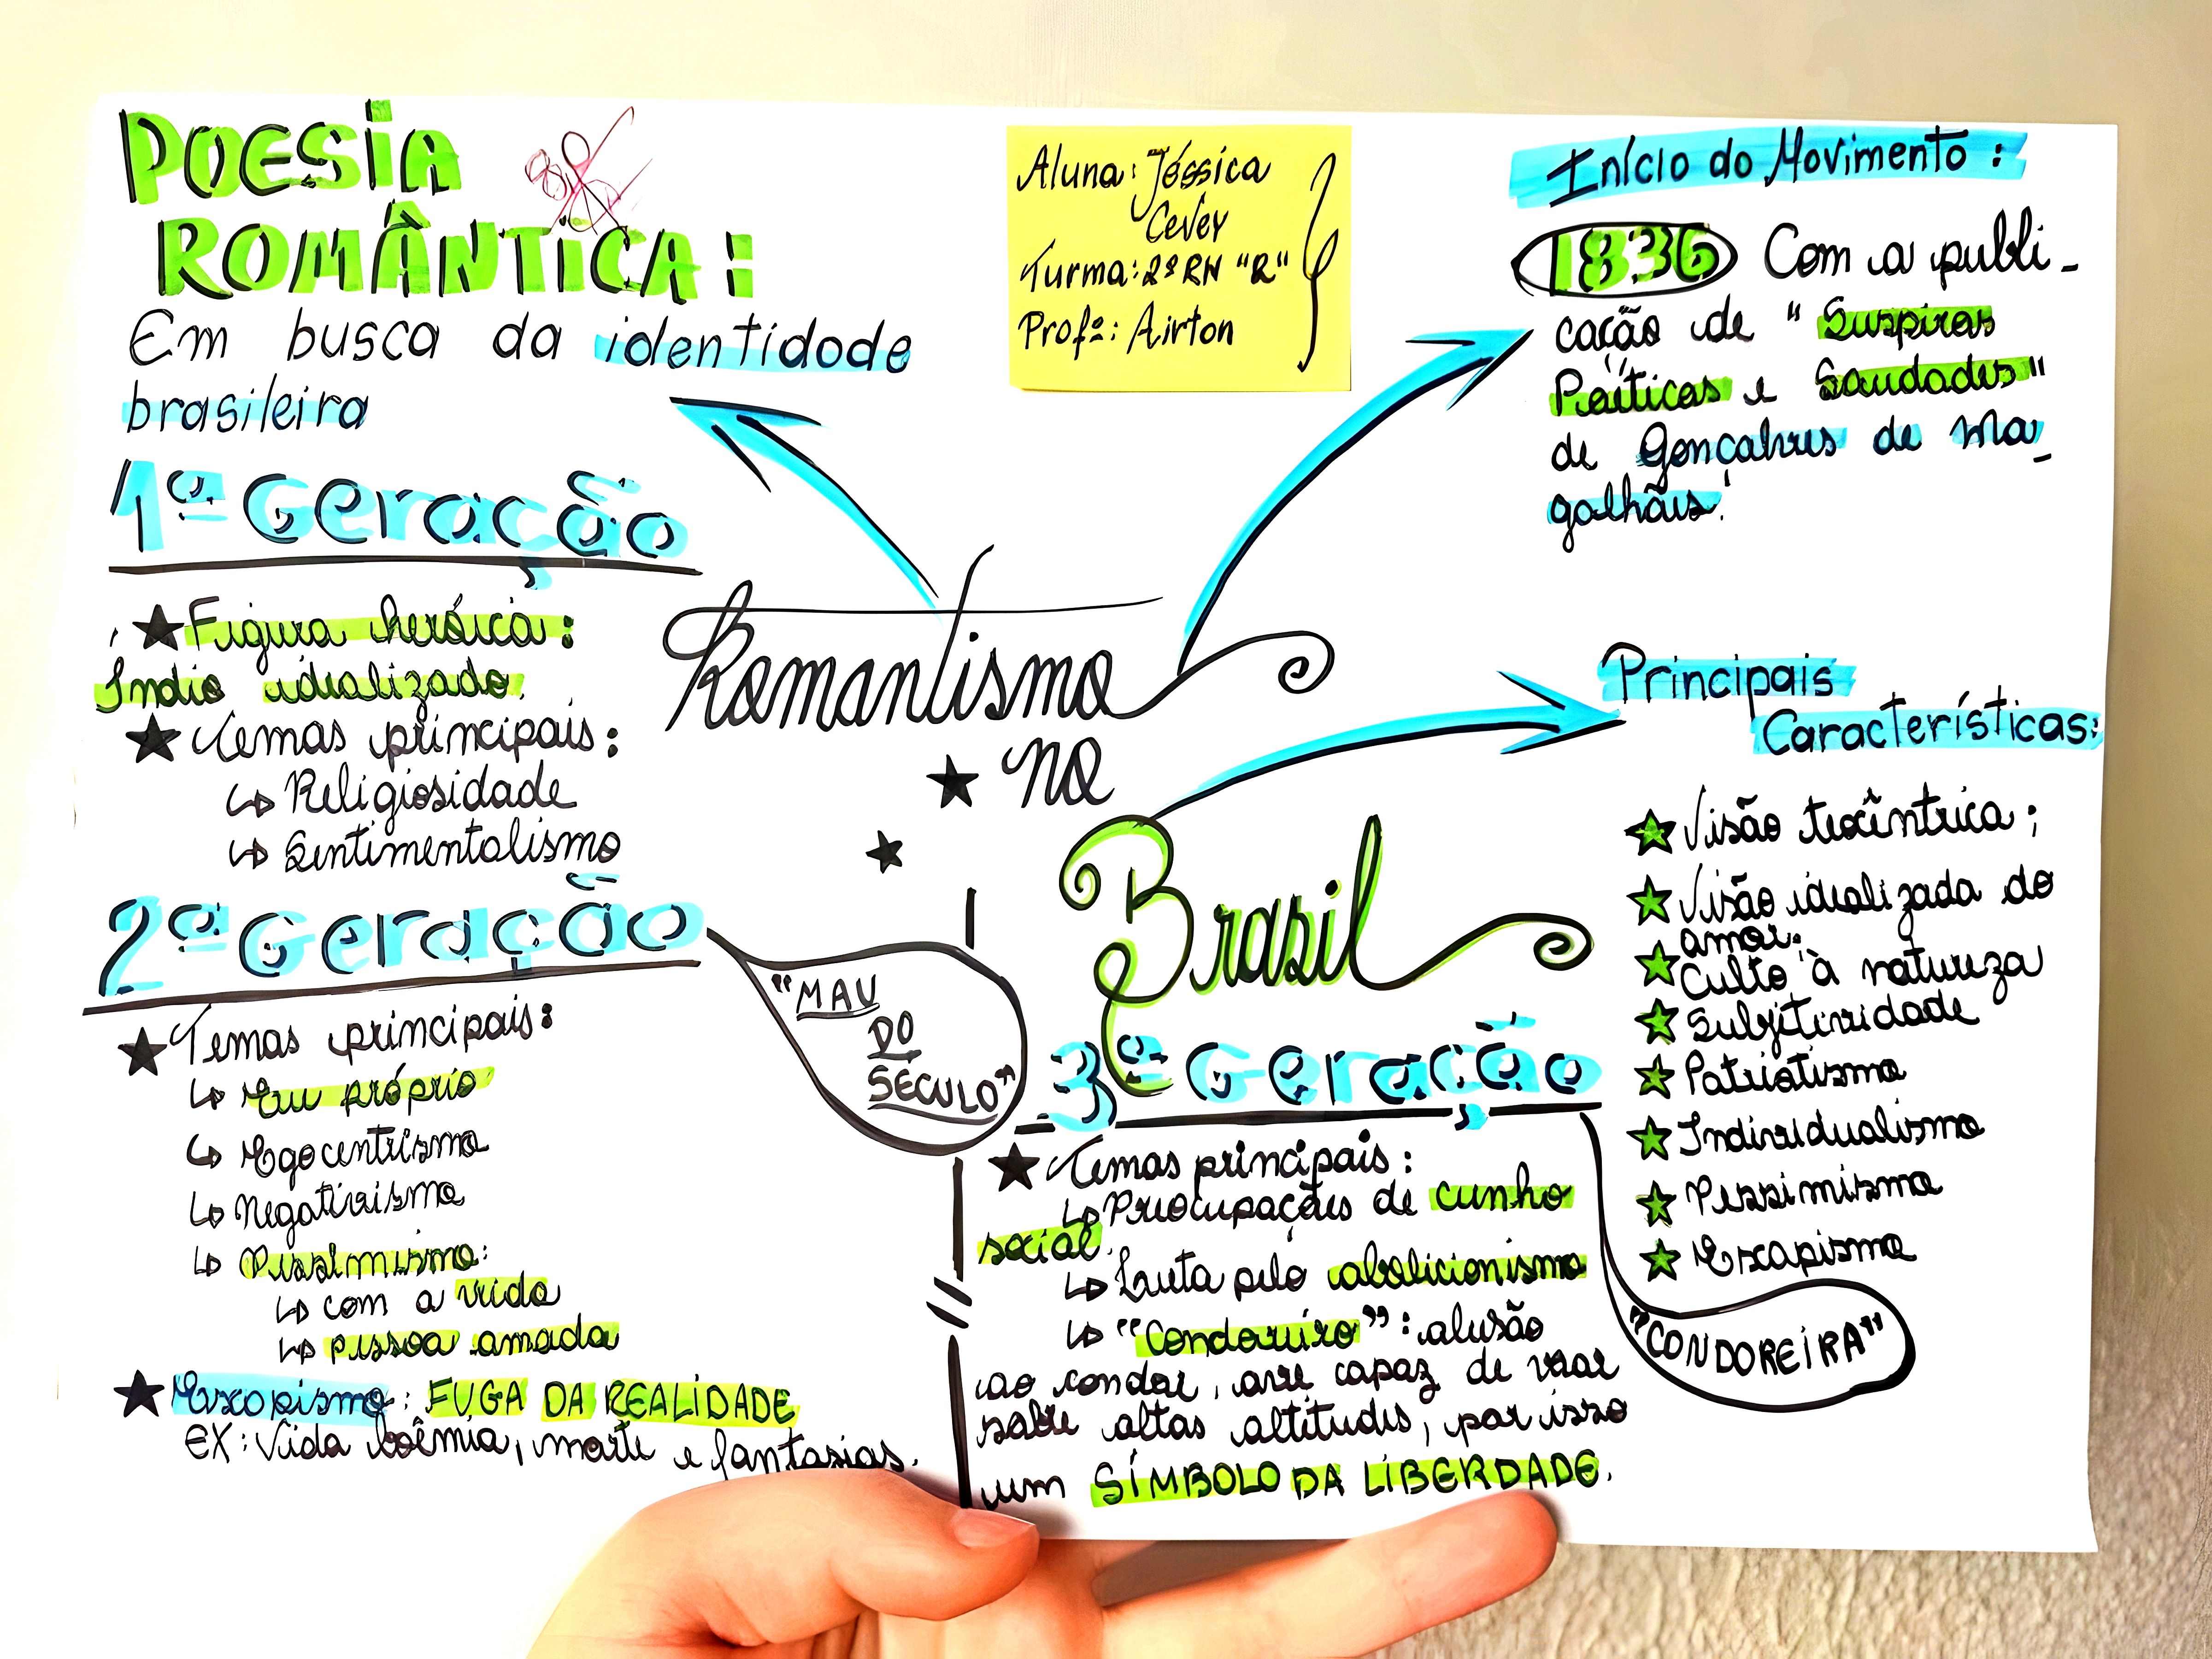 POESIA
ROMÂNTICA:
Em busca da identidade
brasileira
Aluna: Jéssica
Cevey
Turma: 2º RH "R"
Profº: Airton
Início do Movimento:
1836 Com a publi-
cação de "Suspiros
Poéticos e Saudades"
de Gonçalves de Ma-
galhães.
1ª Geração
★ Figura heróica:
Índio idealizado.
★ Temas principais:
↳ Religiosidade
↳ Sentimentalismo
Romantismo
★ no
★
Brasil
Principais
Características:
★ Visão teocêntrica;
★ Visão idealizada do
amor.
★ Culto à natureza
★ Subjetividade
★ Patriotismo
★ Individualismo
★ Pessimismo
★ Escapismo
2ª Geração
"MAU
DO
SÉCULO"
★ Temas principais:
↳ Eu próprio
↳ Egocentrismo
↳ Negativismo
↳ Pessimismo:
↳ com a vida
↳ pessoa amada
★ Escapismo: FUGA DA REALIDADE
EX: Vida boêmia, morte e fantasias.
3ª Geração
★ Temas principais:
↳ Preocupações de cunho
social.
↳ Luta pelo abolicionismo
↳ "Condoreiro": alusão
ao condor, ave capaz de voar
sobre altas altitudes, por isso
um SÍMBOLO DA LIBERDADE.
"CONDOREIRA"